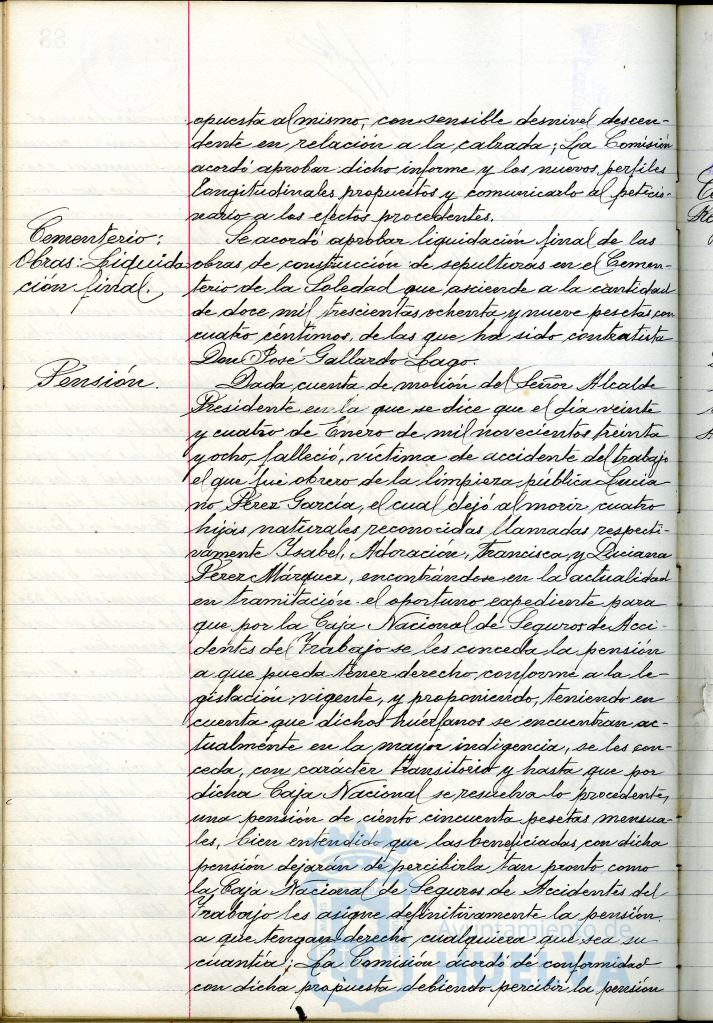 opuesta al mismo, con sensible desnivel descen-
dente en relación a la calzada; La Comisión
acordó aprobar dicho informe y los nuevos perfiles
longitudinales propuestos y comunicarlo al peticio-
nario a los efectos procedentes.
Cementerio:
Obras: Liquida-
ción final.
Se acordó aprobar liquidación final de las
obras de construcción de sepulturas en el Cemen-
terio de la Soledad que asciende a la cantidad
de doce mil trescientas ochenta y nueve pesetas con
cuatro céntimos, de las que ha sido contratista
Don José Gallardo Lago.
Pensión.
Dada cuenta de moción del Señor Alcalde
Presidente en la que se dice que el día veinte
y cuatro de Enero de mil novecientos treinta
y ocho, falleció, víctima de accidente del trabajo
el que fué obrero de la limpieza pública Lucia
no Pérez García, el cual dejó al morir cuatro
hijas naturales reconocidas llamadas respecti-
vamente Isabel, Adoración, Francisca y Luciana
Pérez Márquez, encontrándose en la actualidad
en tramitación el oportuno expediente para
que por la Caja Nacional de Seguros de Acci-
dentes del Trabajo se les conceda la pensión
a que pueda tener derecho conforme a la le-
gislación vigente, y proponiendo, teniendo en
cuenta que dichos huérfanos se encuentran ac-
tualmente en la mayor indigencia, se les con-
ceda, con carácter transitorio y hasta que por
dicha Caja Nacional se resuelva lo procedente,
una pensión de ciento cincuenta pesetas mensua-
les, bien entendido que las beneficiadas con dicha
pensión dejarán de percibirla tan pronto como
la Caja Nacional de Seguros de Accidentes del
Trabajo les asigne definitivamente la pensión
a que tengan derecho, cualquiera que sea su
cuantía; La Comisión acordó de conformidad
con dicha propuesta debiendo percibir la pensión
Ayuntamiento de
HUELVA